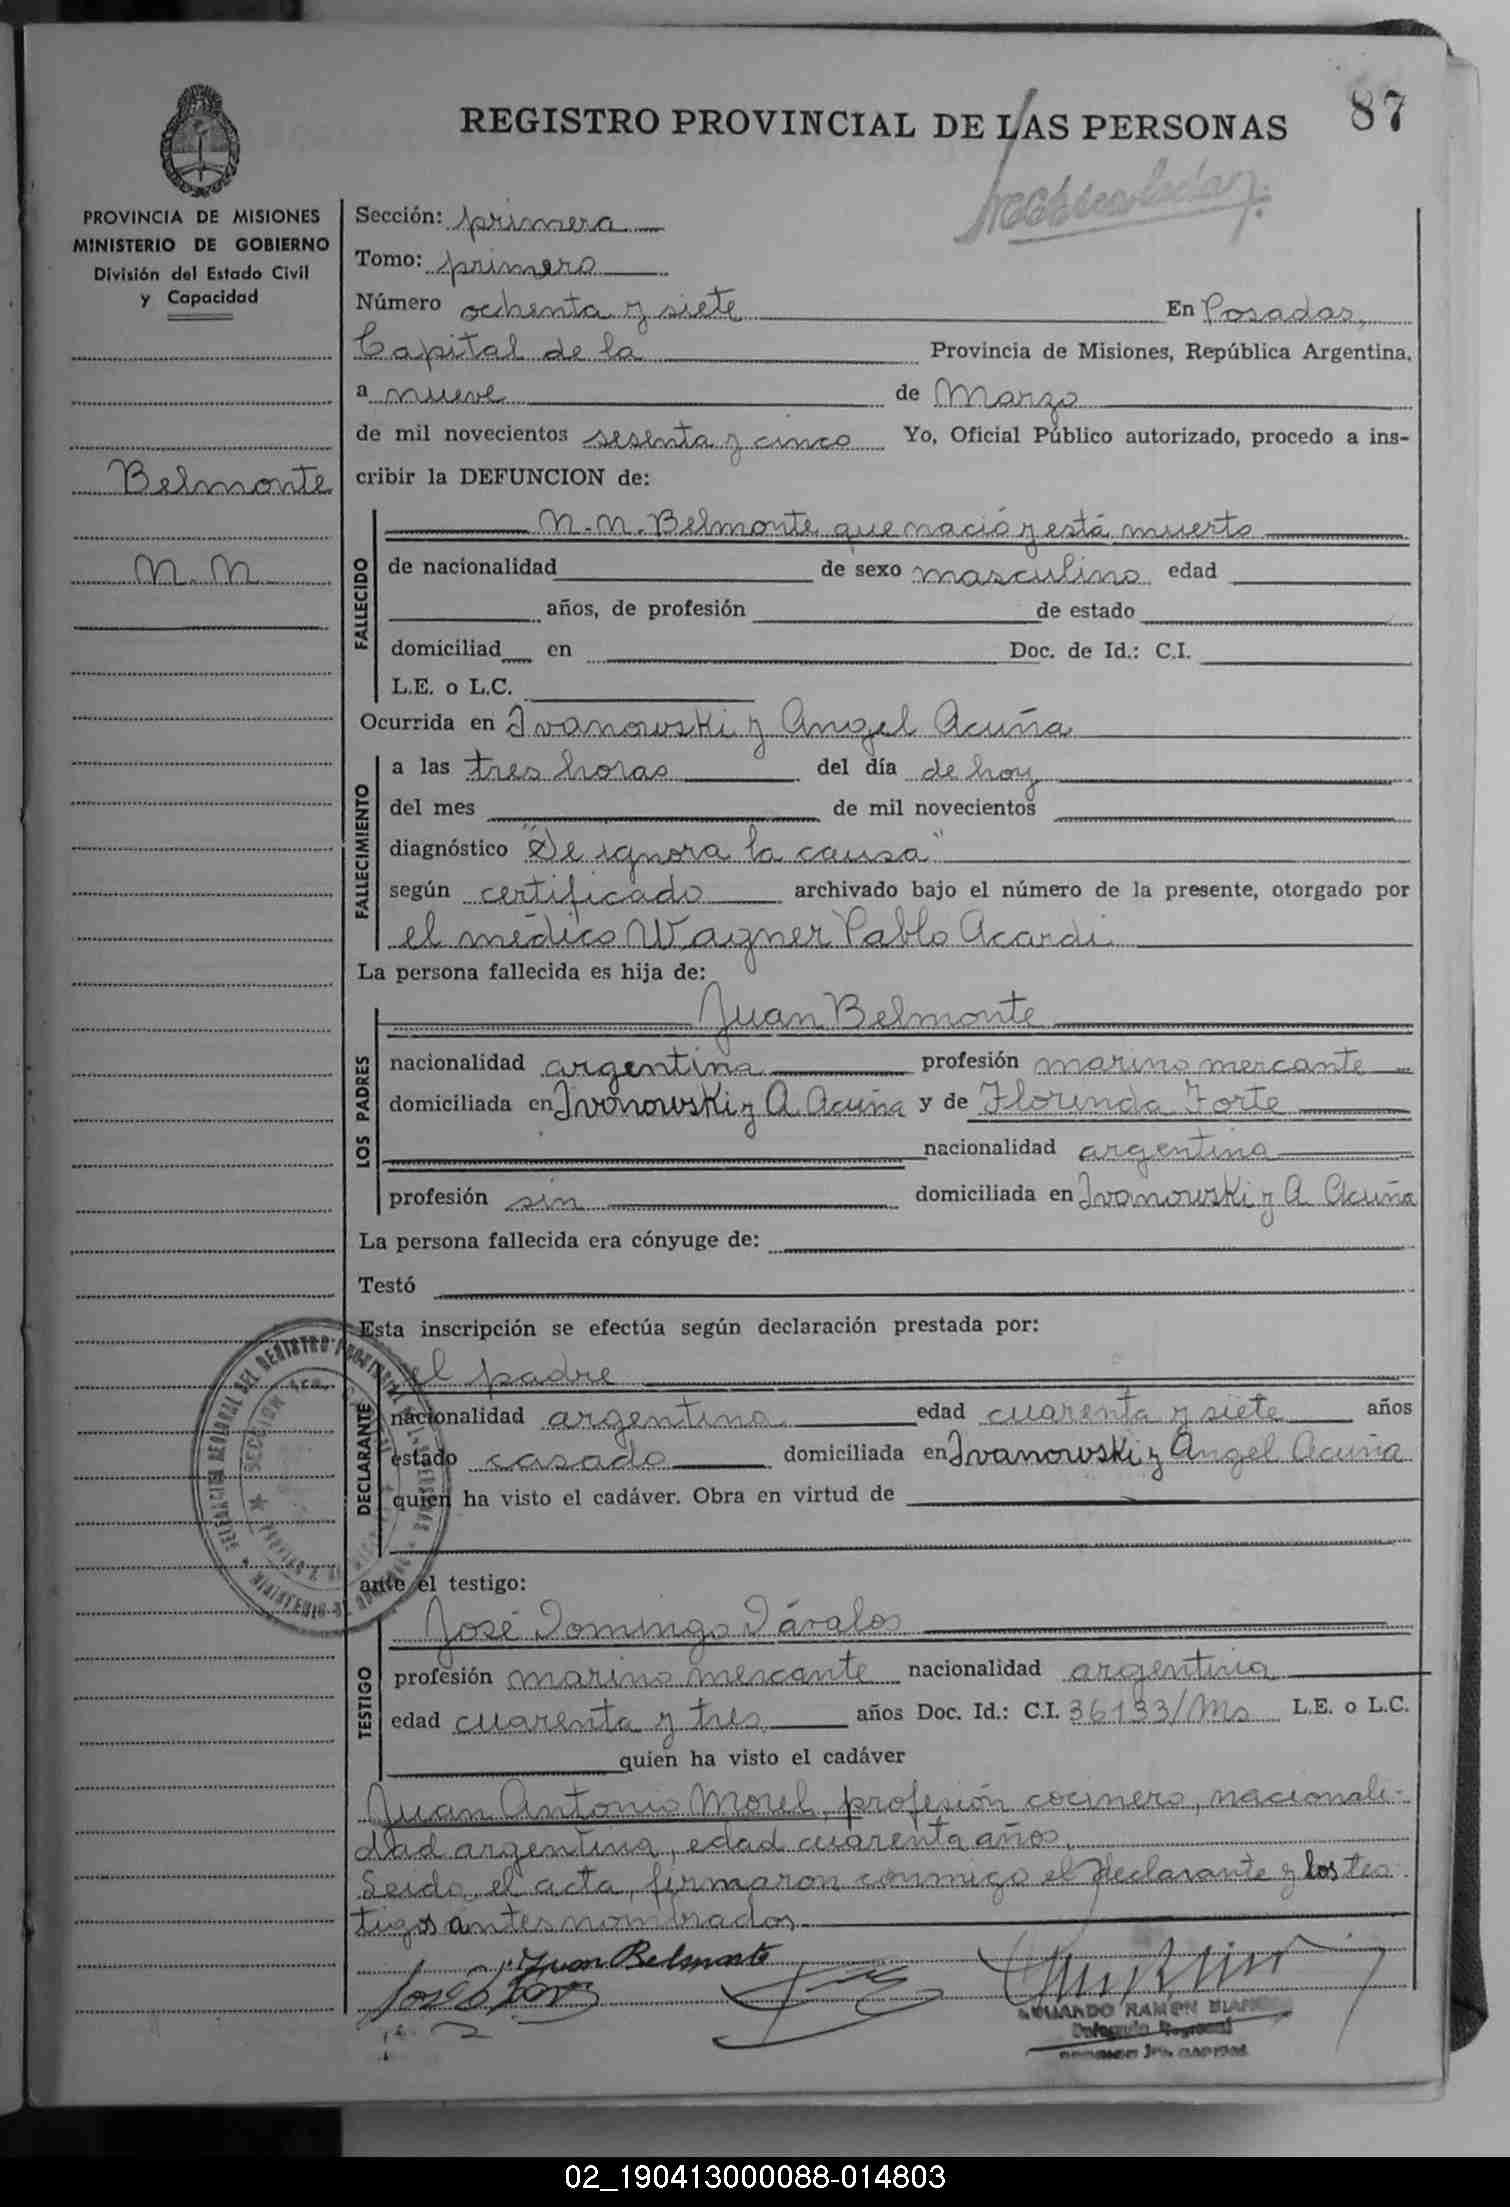 87
REGISTRO PROVINCIAL DE LAS PERSONAS
PROVINCIA DE MISIONES
MINISTERIO DE GOBIERNO
División del Estado Civil
y Capacidad
Belmonte
N. N.
Sección: primera
Tomo: primero
Número ochenta y siete En Posadas,
Capital de la Provincia de Misiones, República Argentina,
a nueve de Marzo
de mil novecientos sesenta y cinco Yo, Oficial Público autorizado, procedo a ins-
cribir la DEFUNCION de:
FALLECIDO
N. N. Belmonte que nació y está muerto
de nacionalidad de sexo masculino edad
años, de profesión de estado
domiciliad en Doc. de Id.: C.I.
L.E. o L.C.
Ocurrida en Ivanowski y Angel Acuña
FALLECIMIENTO
a las tres horas del día de hoy
del mes de mil novecientos
diagnóstico "Se ignora la causa"
según certificado archivado bajo el número de la presente, otorgado por
el médico Wagner Pablo Acardi
La persona fallecida es hija de:
LOS PADRES
Juan Belmonte
nacionalidad argentina profesión marino mercante
domiciliada en Ivanowski y A. Acuña y de Florinda Forte
nacionalidad argentina
profesión sin domiciliada en Ivanowski y A. Acuña
La persona fallecida era cónyuge de:
Testó
Esta inscripción se efectúa según declaración prestada por:
DECLARANTE
el padre
nacionalidad argentina edad cuarenta y siete años
estado casado domiciliada en Ivanowski y Angel Acuña
quien ha visto el cadáver. Obra en virtud de
ante el testigo:
TESTIGO
José Domingo Dávalos
profesión marino mercante nacionalidad argentina
edad cuarenta y tres años Doc. Id.: C.I. 36133/Ms L.E. o L.C.
quien ha visto el cadáver
Juan Antonio Morel, profesión cocinero, nacionali-
dad argentina, edad cuarenta años.
Leida el acta, firmaron conmigo el declarante y los tes-
tigos antes nombrados.
Juan Belmonte
José
RAMON
Delegado Regional
02_190413000088-014803